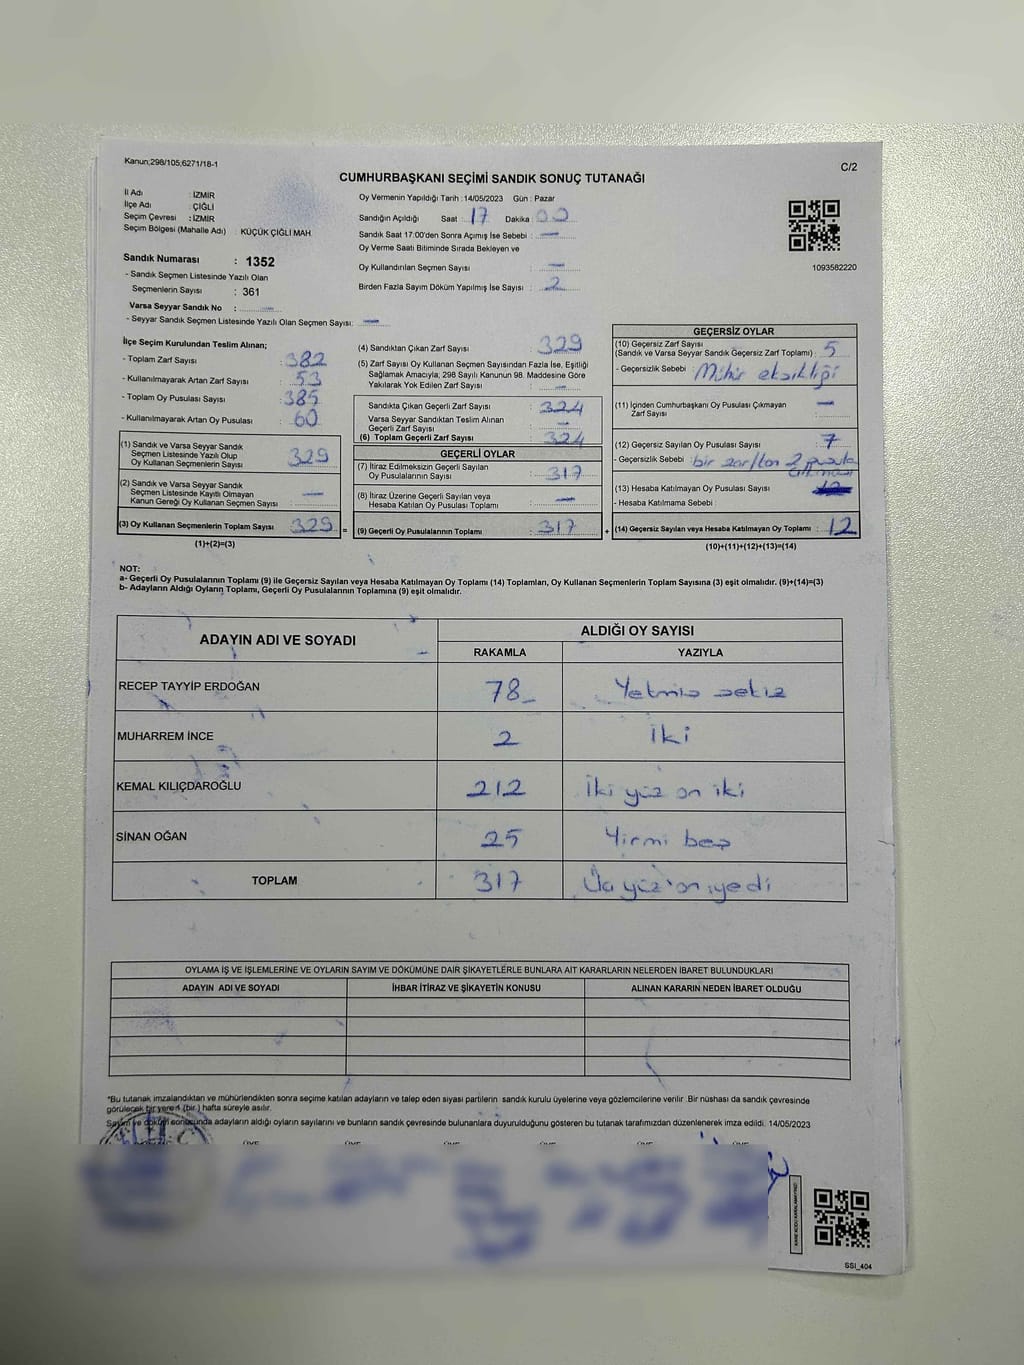 Kanun;298/105;6271/18-1
C/2
CUMHURBAŞKANI SEÇİMİ SANDIK SONUÇ TUTANAĞI
İl Adı : İZMİR
İlçe Adı : ÇİĞLİ
Seçim Çevresi : İZMİR
Seçim Bölgesi (Mahalle Adı) : KÜÇÜK ÇİĞLİ MAH
Sandık Numarası : 1352
- Sandık Seçmen Listesinde Yazılı Olan
Seçmenlerin Sayısı : 361
Varsa Seyyar Sandık No : —
- Seyyar Sandık Seçmen Listesinde Yazılı Olan Seçmen Sayısı: —
Oy Vermenin Yapıldığı Tarih : 14/05/2023 Gün : Pazar
Sandığın Açıldığı Saat 17 Dakika 00
Sandık Saat 17:00'den Sonra Açımış İse Sebebi : —
Oy Verme Saati Bitiminde Sırada Bekleyen ve
Oy Kullandırılan Seçmen Sayısı : —
Birden Fazla Sayım Döküm Yapılmış İse Sayısı : 2
1093582220
İlçe Seçim Kurulundan Teslim Alınan;
- Toplam Zarf Sayısı : 382
- Kullanılmayarak Artan Zarf Sayısı : 53
- Toplam Oy Pusulası Sayısı : 385
- Kullanılmayarak Artan Oy Pusulası : 60
(1) Sandık ve Varsa Seyyar Sandık
Seçmen Listesinde Yazılı Olup
Oy Kullanan Seçmenlerin Sayısı : 329
(2) Sandık ve Varsa Seyyar Sandık
Seçmen Listesinde Kayıtlı Olmayan
Kanun Gereği Oy Kullanan Seçmen Sayısı : —
(3) Oy Kullanan Seçmenlerin Toplam Sayısı : 329 =
(1)+(2)=(3)
(4) Sandıktan Çıkan Zarf Sayısı : 329
(5) Zarf Sayısı Oy Kullanan Seçmen Sayısından Fazla İse, Eşitliği
Sağlamak Amacıyla, 298 Sayılı Kanunun 98. Maddesine Göre
Yakılarak Yok Edilen Zarf Sayısı : —
Sandıkta Çıkan Geçerli Zarf Sayısı : 324
Varsa Seyyar Sandıktan Teslim Alınan
Geçerli Zarf Sayısı : —
(6) Toplam Geçerli Zarf Sayısı : 324
GEÇERLİ OYLAR
(7) İtiraz Edilmeksizin Geçerli Sayılan
Oy Pusulalarının Sayısı : 317
(8) İtiraz Üzerine Geçerli Sayılan veya
Hesaba Katılan Oy Pusulası Toplamı : —
(9) Geçerli Oy Pusulalarının Toplamı : 317 +
GEÇERSİZ OYLAR
(10) Geçersiz Zarf Sayısı
(Sandık ve Varsa Seyyar Sandık Geçersiz Zarf Toplamı) : 5
- Geçersizlik Sebebi : Mühür eksikliği
(11) İçinden Cumhurbaşkanı Oy Pusulası Çıkmayan
Zarf Sayısı : —
(12) Geçersiz Sayılan Oy Pusulası Sayısı : 7
- Geçersizlik Sebebi : bir zarftan 2 pusula
çıkması
(13) Hesaba Katılmayan Oy Pusulası Sayısı :
- Hesaba Katılmama Sebebi :
(14) Geçersiz Sayılan veya Hesaba Katılmayan Oy Toplamı : 12
(10)+(11)+(12)+(13)=(14)
NOT:
a- Geçerli Oy Pusulalarının Toplamı (9) ile Geçersiz Sayılan veya Hesaba Katılmayan Oy Toplamı (14) Toplamları, Oy Kullanan Seçmenlerin Toplam Sayısına (3) eşit olmalıdır. (9)+(14)=(3)
b- Adayların Aldığı Oyların Toplamı, Geçerli Oy Pusulalarının Toplamına (9) eşit olmalıdır.
ADAYIN ADI VE SOYADI ALDIĞI OY SAYISI
RAKAMLA YAZIYLA
RECEP TAYYİP ERDOĞAN 78 Yetmiş sekiz
MUHARREM İNCE 2 İki
KEMAL KILIÇDAROĞLU 212 İki yüz on iki
SİNAN OĞAN 25 Yirmi beş
TOPLAM 317 Üç yüz on yedi
OYLAMA İŞ VE İŞLEMLERİNE VE OYLARIN SAYIM VE DÖKÜMÜNE DAİR ŞİKAYETLERLE BUNLARA AİT KARARLARIN NELERDEN İBARET BULUNDUKLARI
ADAYIN ADI VE SOYADI İHBAR İTİRAZ VE ŞİKAYETİN KONUSU ALINAN KARARIN NEDEN İBARET OLDUĞU
*Bu tutanak imzalandıktan ve mühürlendikten sonra seçime katılan adayların ve talep eden siyasi partilerin sandık kurulu üyelerine veya gözlemcilerine verilir .Bir nüshası da sandık çevresinde
görülecek bir yere 1 (bir ) hafta süreyle asılır.
Sayım ve döküm sonucunda adayların aldığı oyların sayılarını ve bunların sandık çevresinde bulunanlara duyurulduğunu gösteren bu tutanak tarafımızdan düzenlenerek imza edildi. 14/05/2023
SSI_404